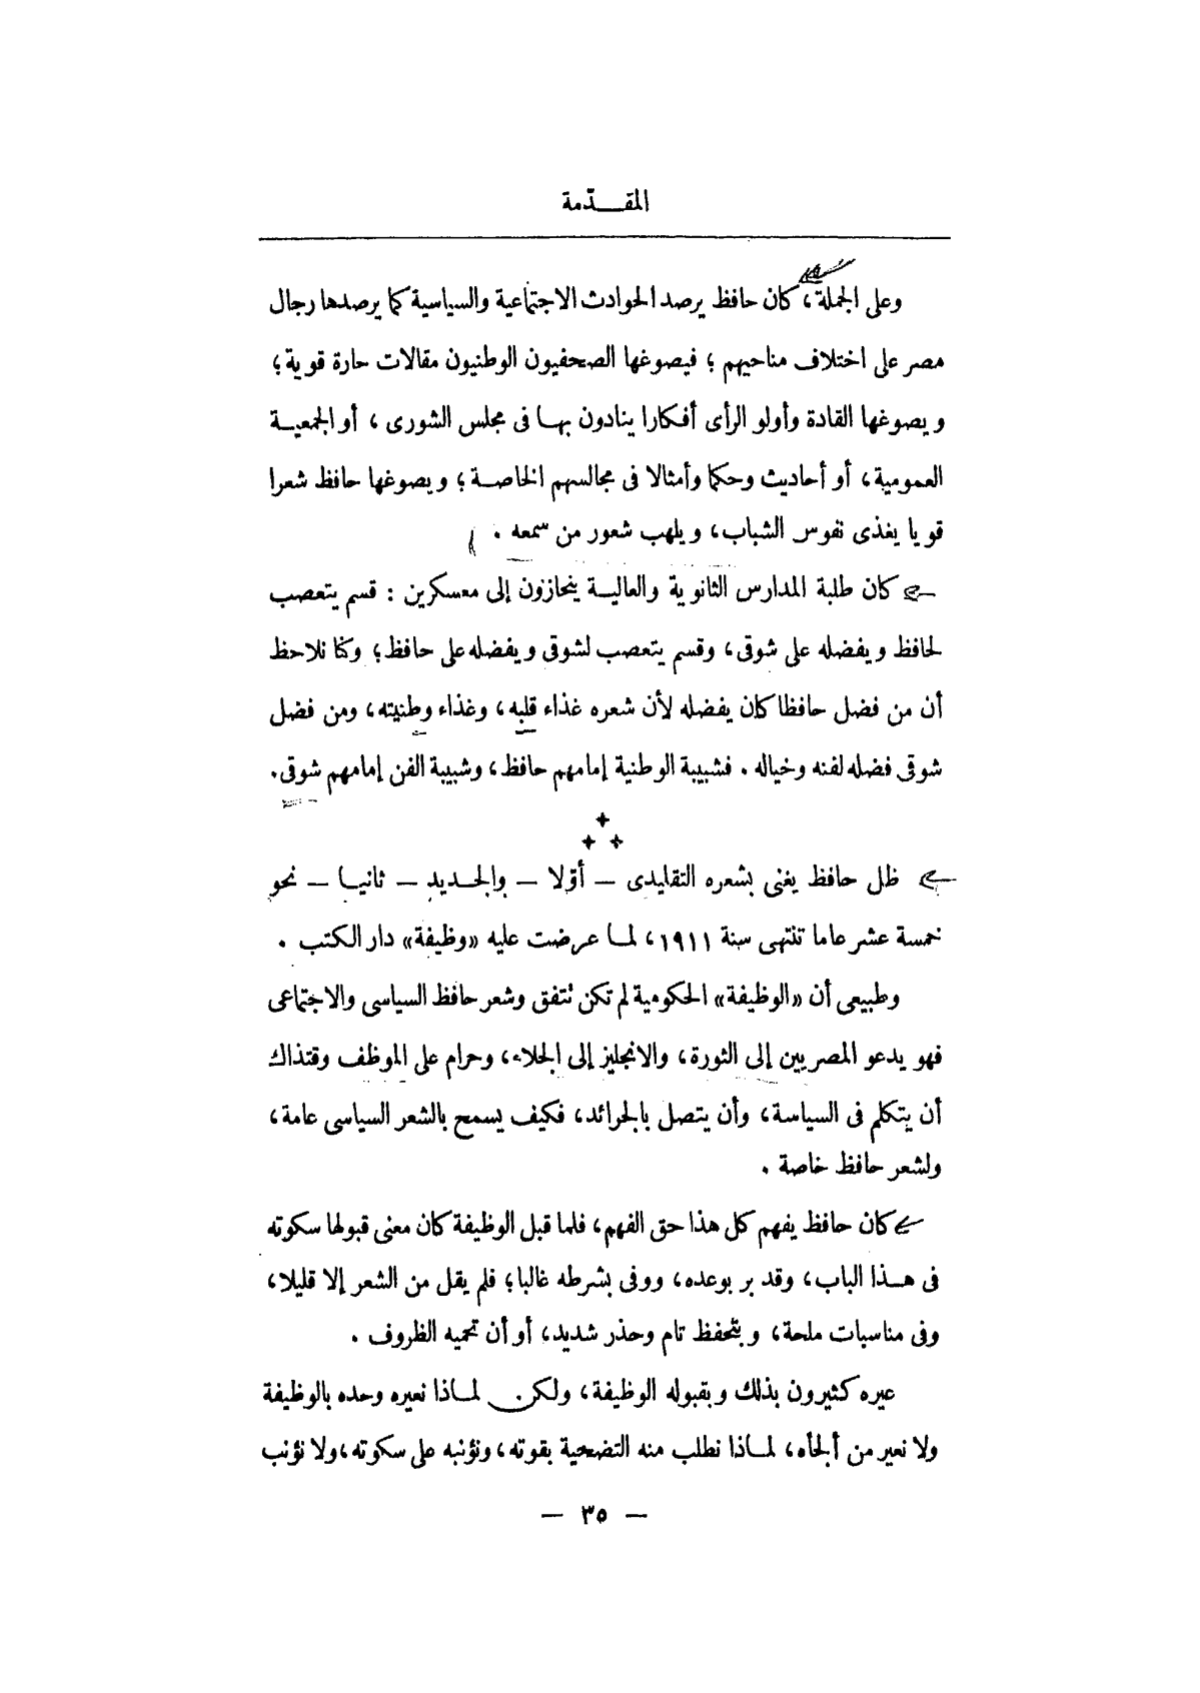 المقـــدّمة
وعلى الجملة، كان حافظ يرصد الحوادث الاجتماعية والسياسية كما يرصدها رجال
مصر على اختلاف مناحيهم ؛ فيصوغها الصحفيون الوطنيون مقالات حارة قوية ؛
ويصوغها القادة وأولو الرأى أفكارا ينادون بهـا فى مجلس الشورى ، أو الجمعيـة
العمومية، أو أحاديث وحكما وأمثالا فى مجالسهم الخاصـة ؛ ويصوغها حافظ شعرا
قويا يغذى نفوس الشباب، ويلهب شعور من سمعه .
كان طلبة المدارس الثانوية والعاليـة ينحازون إلى معسكرين : قسم يتعصب
لحافظ ويفضله على شوقى، وقسم يتعصب لشوقى ويفضله على حافظ؛ وكنا نلاحظ
أن من فضل حافظا كان يفضله لأن شعره غذاء قلبه، وغذاء وطنيته، ومن فضل
شوقى فضله لفنه وخياله . فشبيبة الوطنية إمامهم حافظ، وشبيبة الفن إمامهم شوقى.
ظل حافظ يغنى بشعره التقليدى – أوّلا – والجـديد – ثانيـا – نحو
خمسة عشر عاما تنتهى سنة ١٩١١، لمـا عرضت عليه «وظيفة» دار الكتب .
وطبيعى أن «الوظيفة» الحكومية لم تكن تتفق وشعر حافظ السياسى والاجتماعى
فهو يدعو المصريين إلى الثورة، والانجليز إلى الجلاء، وحرام على الموظف وقتذاك
أن يتكلم فى السياسة، وأن يتصل بالجرائد، فكيف يسمح بالشعر السياسى عامة،
ولشعر حافظ خاصة .
كان حافظ يفهم كل هذا حق الفهم، فلما قبل الوظيفة كان معنى قبولها سكوته
فى هـذا الباب، وقد بر بوعده، ووفى بشرطه غالبا؛ فلم يقل من الشعر إلا قليلا،
وفى مناسبات ملحة، وبتحفظ تام وحذر شديد، أو أن تحميه الظروف .
عيره كثيرون بذلك وبقبوله الوظيفة، ولكن لمـاذا نعيره وحده بالوظيفة
ولا نعير من ألجأه، لمـاذا نطلب منه التضحية بقوته، ونؤنبه على سكوته، ولا نؤنب
— ٣٥ —